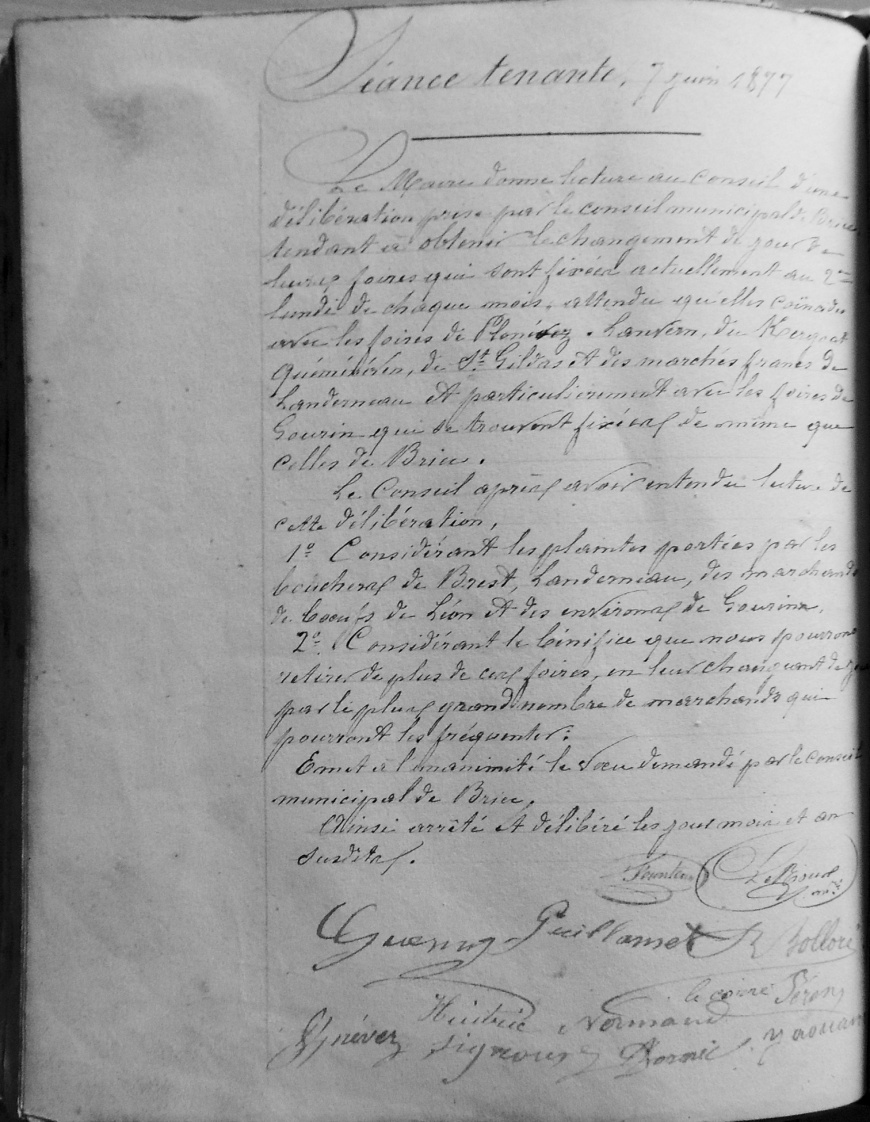 Séance tenante, 7 juin 1877
Le Maire donne lecture au conseil d'une
délibération prise par le conseil municipal de Briec
tendant à obtenir le changement de jour de
leurs foires qui sont fixées actuellement au 2me
lundi de chaque mois, attendu qu'elles coïncides
avec les foires de Plonévez, Lanvern, du Kergoat
Quéménéven, de St Gildas et des marchés francs de
Landerneau et particulièrement avec les foires de
Gourin qui se trouvent fixées de même que
celles de Briec.
Le Conseil après avoir entendu lecture de
cette délibération,
1o Considérant les plaintes portées par les
bouchers de Brest, Landerneau, des marchands
de boeufs de Léon et des environs de Gourin,
2o Considérant le bénifice que nous pourrons
retirer de plus de ces foires, en leur changeant de
par le plus grand nombre de marchands qui
pourront les fréquenter:
Emet à l'unanimité le voeu demandé par le conseil
municipal de Briec,
Ainsi arrêté et délibéré les jour mois et an
susdits.
Guenno Guillamet R Bolloré
Normand